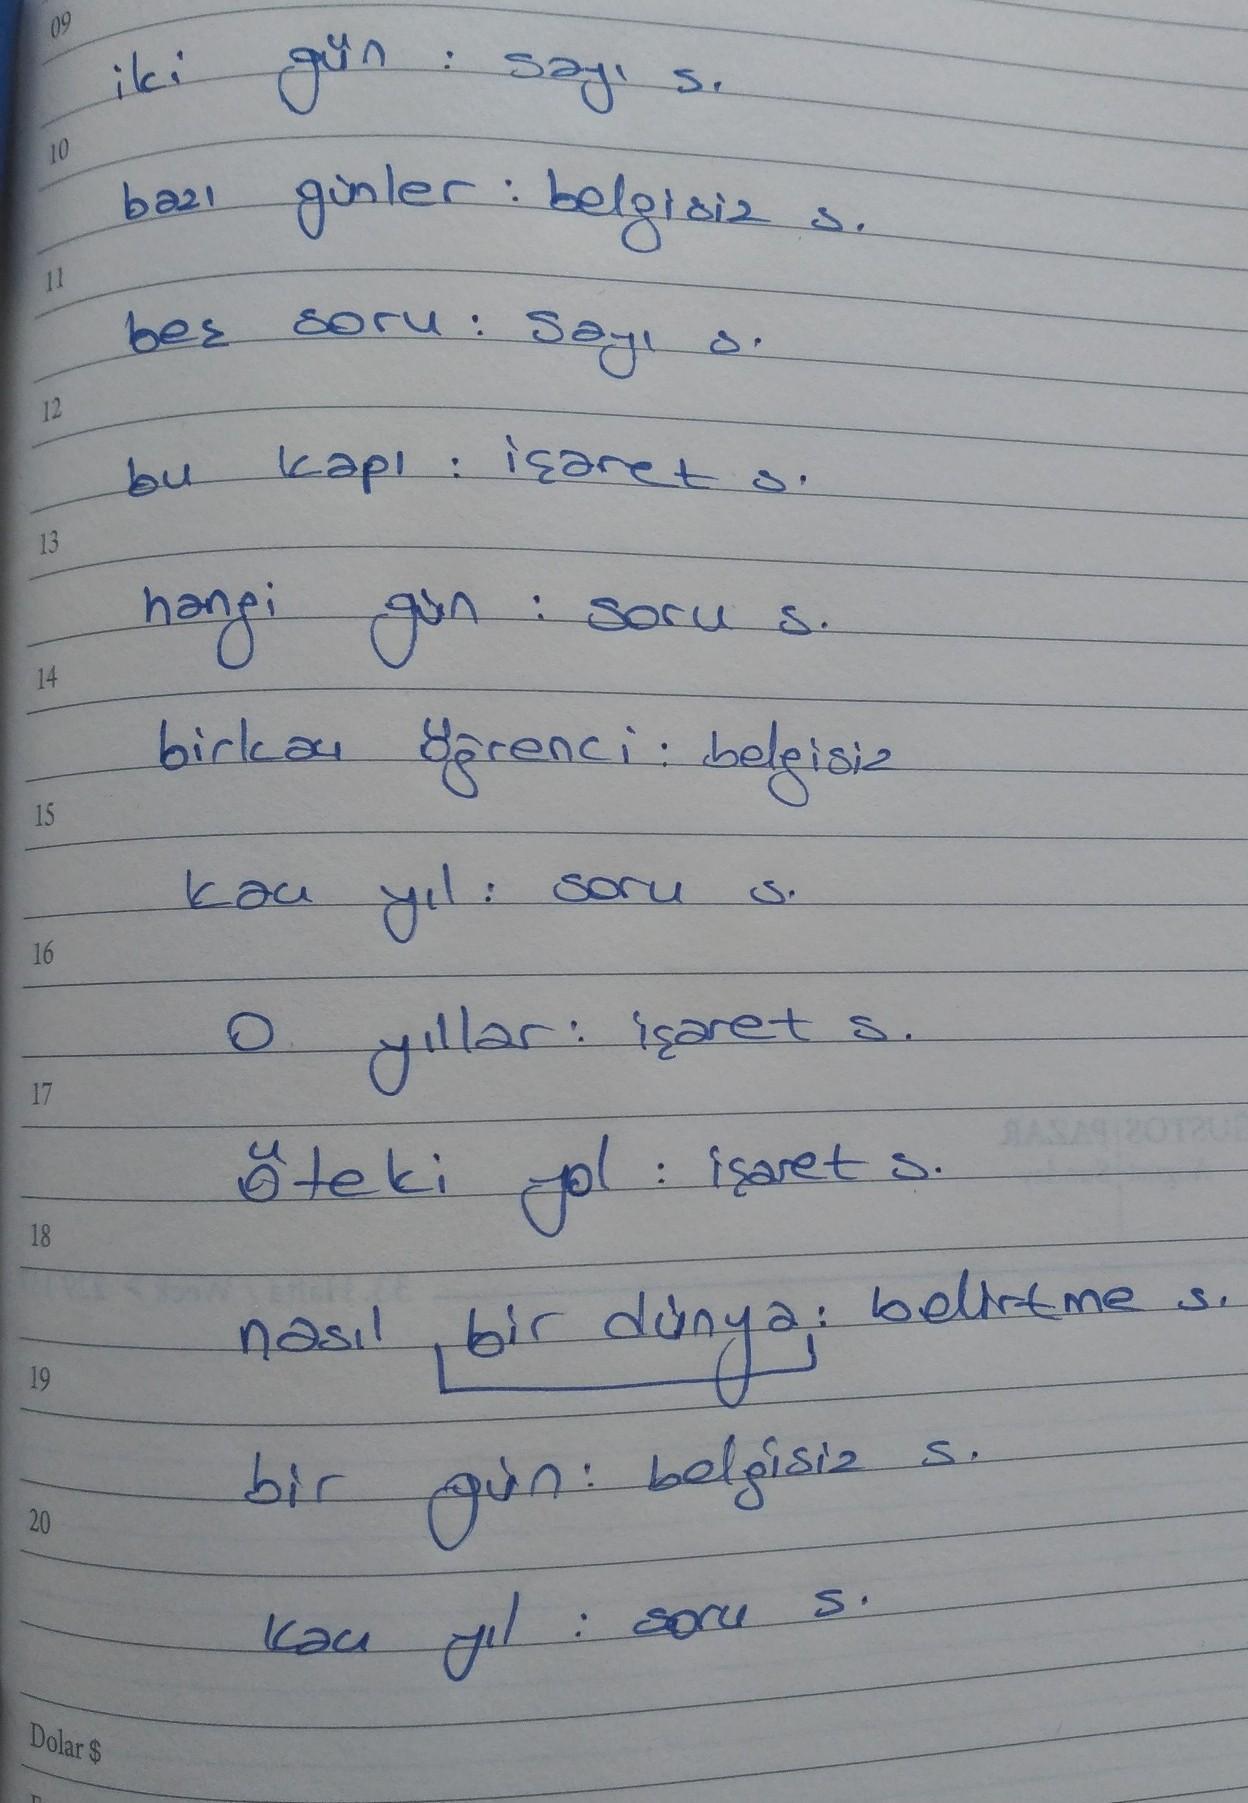 09
iki gün : sayı s.
10
bazı günler : belgisiz s.
11
beş soru : sayı s.
12
bu kapı : işaret s.
13
hangi gün : soru s.
14
birkaç öğrenci : belgisiz
15
kaç yıl : soru s.
16
O yıllar : işaret s.
17
GUSTOS PAZAR
öteki yol : işaret s.
18
33. Hafta / Week
nasıl bir dünya : belirtme s.
19
bir gün : belgisiz s.
20
kaç yıl : soru s.
Dolar $